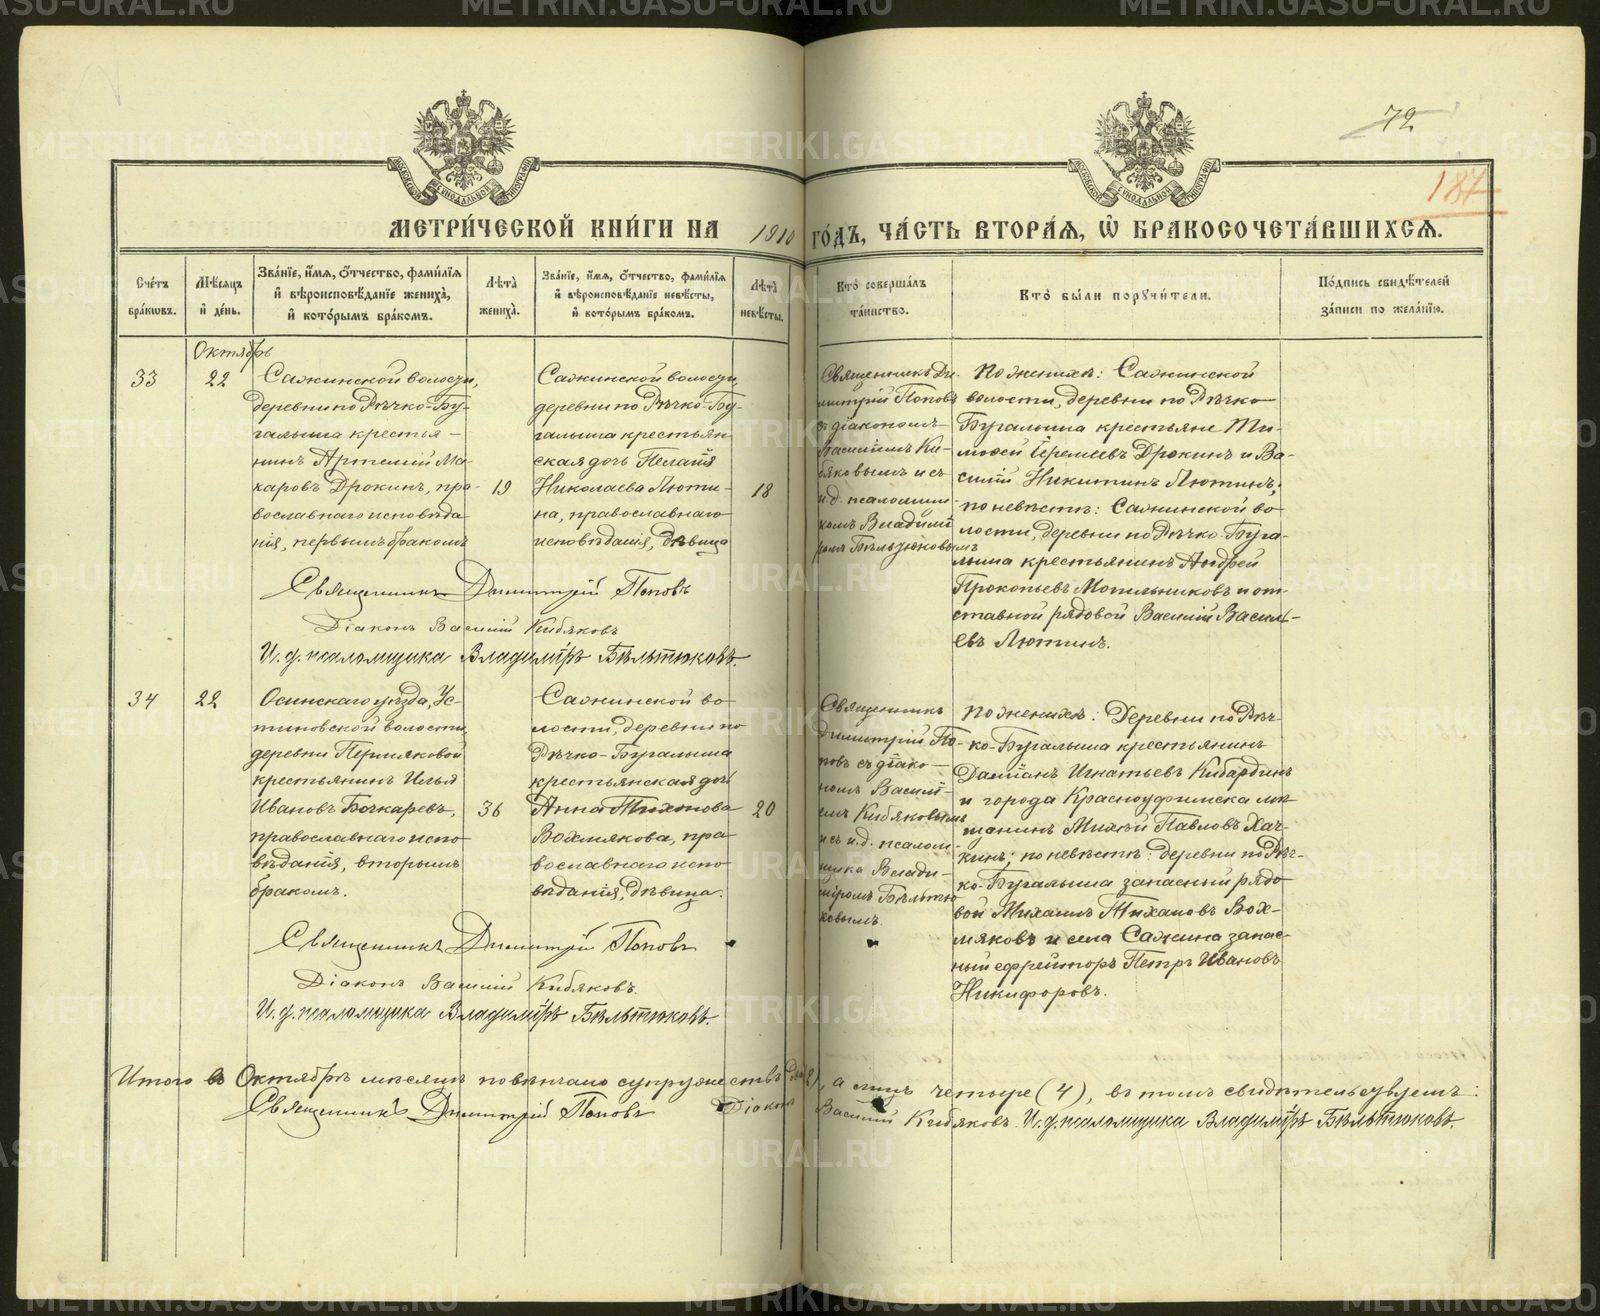 METRIKI.GASO-URAL.RU
72
187
МОСКОВСКОЙ СѴНОДАЛЬНОЙ ТИПОГРАФІИ
МОСКОВСКОЙ СѴНОДАЛЬНОЙ ТИПОГРАФІИ
МЕТРИ́ЧЕСКОЙ КНИ́ГИ НА 1910 ГО́ДЪ, ЧА́СТЬ ВТОРА́Я, Ѡ҆ БРАКОСОЧЕТА́ВШИХСЯ.
Сче́тъ бра́кѡвъ.
Мѣ́сяцъ и҆ де́нь.
Зва́нїе, и҆́мя, ѻ҆́тчество, фами́лїя и҆ вѣроисповѣ́данїе жениха̀, и҆ кото́рымъ бра́комъ.
Лѣ́та̀ жениха̀.
Зва́нїе, и҆́мя, ѻ҆́тчество, фами́лїя и҆ вѣроисповѣ́данїе невѣ́сты, и҆ кото́рымъ бра́комъ.
Лѣ́та̀ невѣ́сты.
Кто̀ соверша́лъ та́инство.
Кто̀ бы́ли порꙋчи́тели.
По́дпись свидѣ́телей за́писи по жела́нїю.
Октябрь
33
22
Сажинской волости,
деревни по Рѣчко-Бу-
галыша крестья-
нинъ Артемій Ма-
каровъ Дрокинъ, пра-
вославнаго исповѣда
нія, первымъ бракомъ
19
Сажинской волости,
деревни по Рѣчко-Бу-
галыша крестьян
ская дочь Пелагія
Николаева Люти-
на, православнаго
исповѣданія, дѣвица
18
Священникъ Ди-
митрій Поповъ
съ діакономъ
Василіемъ Ки-
бяковымъ и съ
и.д. псаломщи-
комъ Владимі
ромъ Бѣльтюковымъ
По женихѣ: Сажинской
волости, деревни по Рѣчко
Бугалыша крестьяне Ти-
мофей Еремеевъ Дрокинъ и Ва-
силій Никитинъ Лютинъ;
по невѣстѣ: Сажинской во
лости, деревни по Рѣчко-Буга-
лыша крестьянинъ Андрей
Прокопьевъ Мотыльниковъ и от-
ставной рядовой Василій Василь-
евъ Лютинъ.
Священникъ Димитрій Поповъ
Діаконъ Василій Кибяковъ
И. д. псаломщика Владиміръ Бѣльтюковъ.
34
22
Осинскаго уѣзда, Ус-
тиновской волости,
деревни Пермяковой
крестьянинъ Илья
Ивановъ Бочкаревъ,
православнаго испо
вѣданія, вторымъ
бракомъ.
36
Сажинской во
лости, деревни по
Рѣчко-Бугалыша
крестьянская дочь
Анна Тихонова
Вохмякова, пра
вославнаго испо
вѣданія, дѣвица.
20
Священникъ
Димитрій По-
повъ съ діако-
номъ Василі-
емъ Кибяковымъ
и съ и.д. псалом-
щика Влади-
міромъ Бѣльтю
ковымъ.
По женихѣ: Деревни по Рѣч-
ко-Бугалыша крестьянинъ
Даміанъ Игнатьевъ Кибардинъ
и города Красноуфимска мѣ
щанинъ Михѣй Павловъ Хач-
кинъ; по невѣстѣ: деревни по Рѣч-
ко-Бугалыша запасный рядо
вой Михаилъ Тихановъ Вох-
мяковъ и села Сажина запас-
ный ефрейторъ Петръ Ивановъ
Никифоровъ.
Священникъ Димитрій Поповъ
Діаконъ Василій Кибяковъ.
И. д. псаломщика Владиміръ Бѣльтюковъ.
Итого въ Октябрѣ мѣсяцѣ повѣнчано супружествъ два (2), а лицъ четыре (4), въ томъ свидѣтельствуемъ:
Священникъ Димитрій Поповъ Діаконъ Василій Кибяковъ. И. д. псаломщика Владиміръ Бѣльтюковъ.